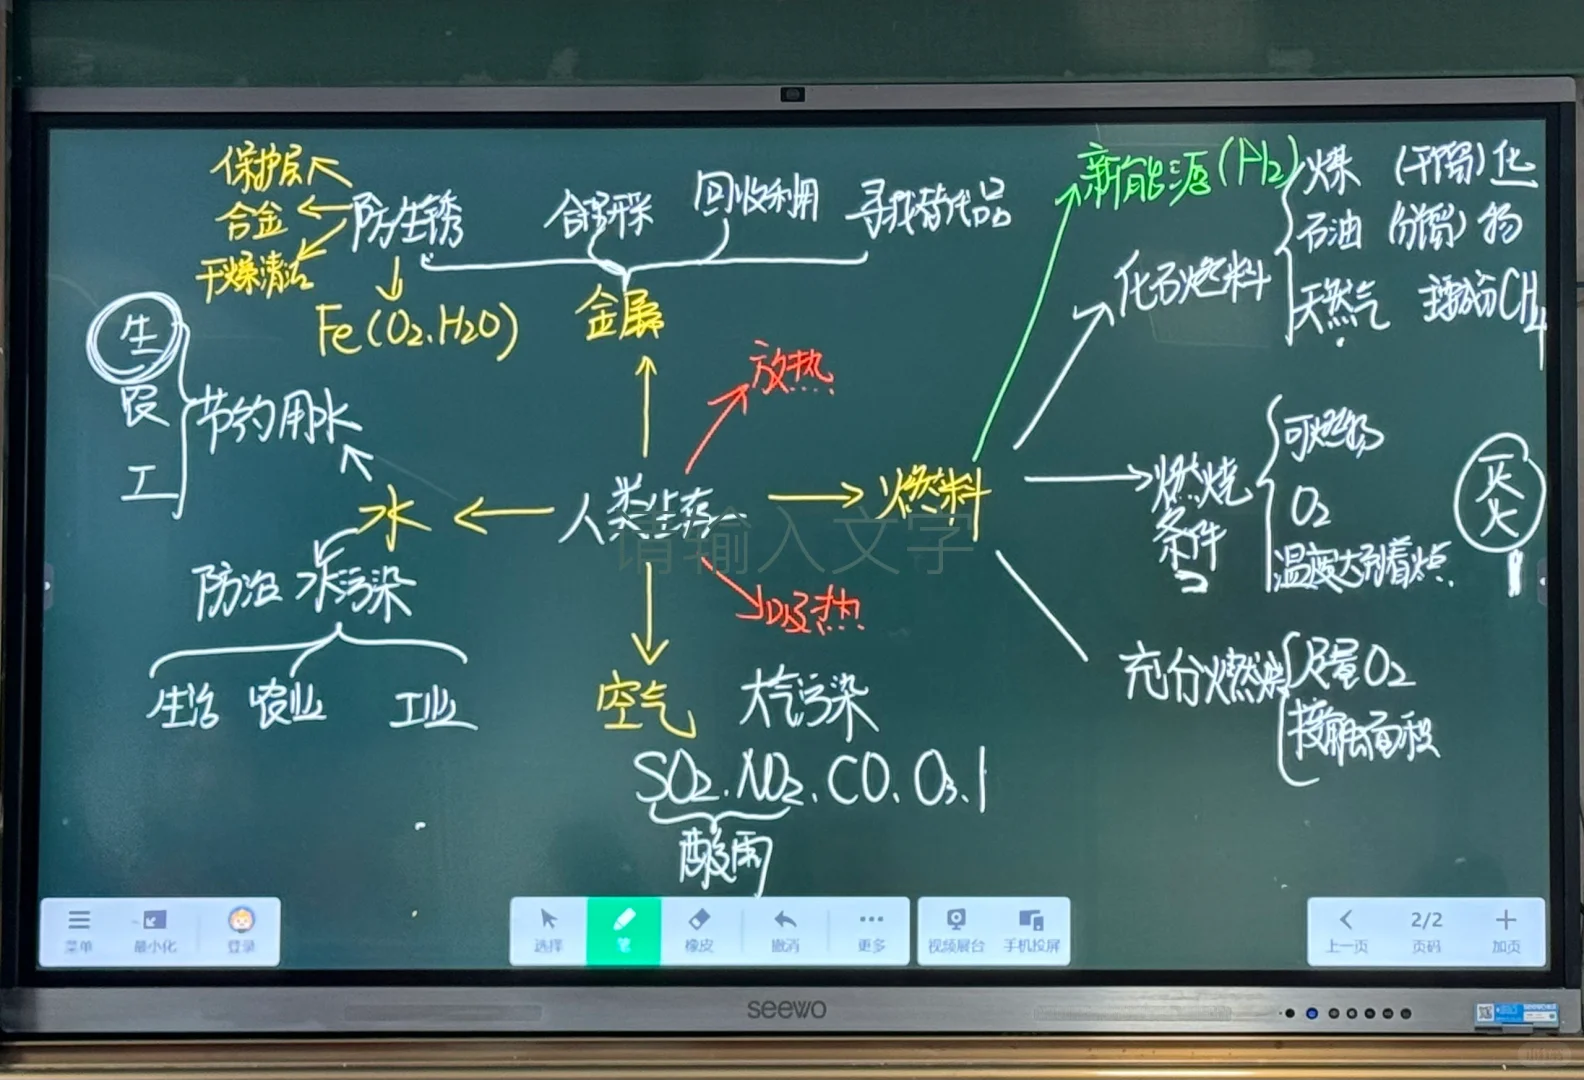 保护层
合金
干燥清洁
防生锈
合理开采
回收利用
寻找替代品
Fe(O₂.H₂O)
金属
新能源(H₂)
化石燃料
煤 (干馏) 化
石油 (分馏) 物
天然气 主要成分CH₄
生
农
工
节约用水
放热
水
人类生存
燃料
请输入文字
燃烧
条件
可燃物
O₂
温度达到着火点
灭
火
防治水污染
生活 农业 工业
吸热
空气 大气污染
SO₂.NO₂.CO.O₃.
酸雨
充分燃烧
足量O₂
接触面积
菜单
最小化
登录
选择
笔
橡皮
撤消
更多
视频展台
手机投屏
上一页
2/2
页码
加页
seewo